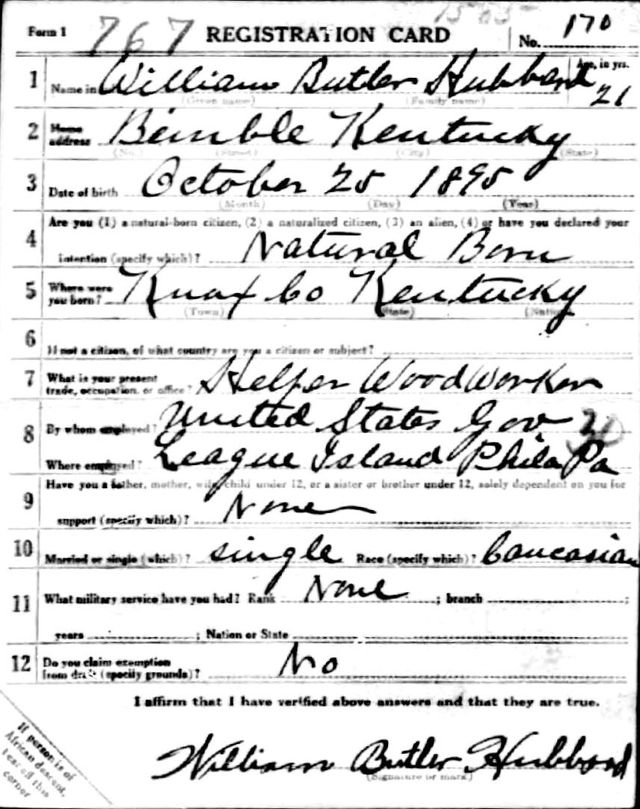 15 05
Form 1 767 REGISTRATION CARD No. 170
1 Name in William Butler Hubbard Age, in yrs. 21
(Given name) (Family name)
2 Home address Bimble Kentucky
(No.) (Street) (City) (State)
3 Date of birth October 25 1895
(Month) (Day) (Year)
Are you (1) a natural-born citizen, (2) a naturalized citizen, (3) an alien, (4) or have you declared your
4 intention (specify which)? Natural Born
5 Where were you born? Knox Co Kentucky
(Town) (State) (Nation)
6 If not a citizen, of what country are you a citizen or subject?
7 What is your present trade, occupation, or office? Helper Wood Worker
8 By whom employed? United States Gov
Where employed? League Island Phila Pa
9 Have you a father, mother, wife, child under 12, or a sister or brother under 12, solely dependent on you for
support (specify which)? None
10 Married or single (which)? single Race (specify which)? Caucasian
11 What military service have you had? Rank None ; branch ;
years ; Nation or State
12 Do you claim exemption from draft (specify grounds)? No
I affirm that I have verified above answers and that they are true.
If person is of
African descent,
tear off this
corner
William Butler Hubbard
(Signature or mark)